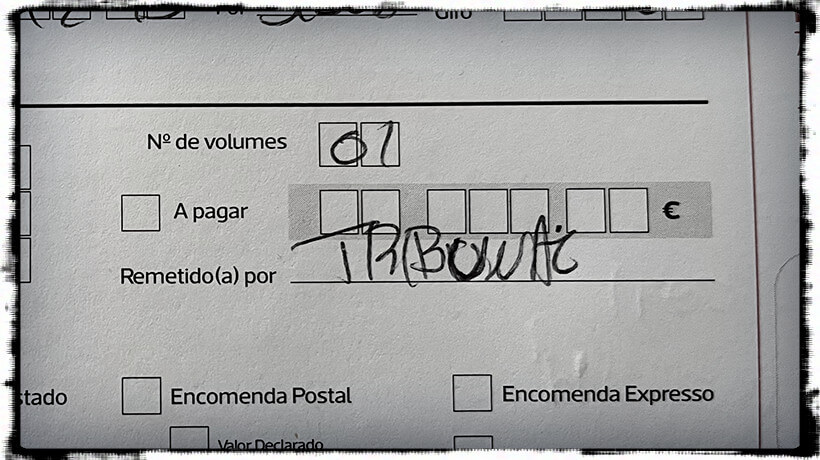 Nº de volumes 01
A pagar €
Remetido(a) por TRIBUNAL
Encomenda Postal Encomenda Expresso
Valor Declarado